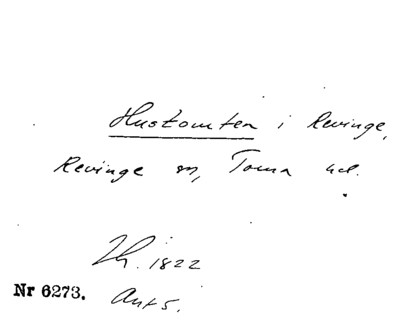 Hustomten i Revinge,
Revinge sn, Torna hd.
Th. 1822
Nr 6273. Ant 5.